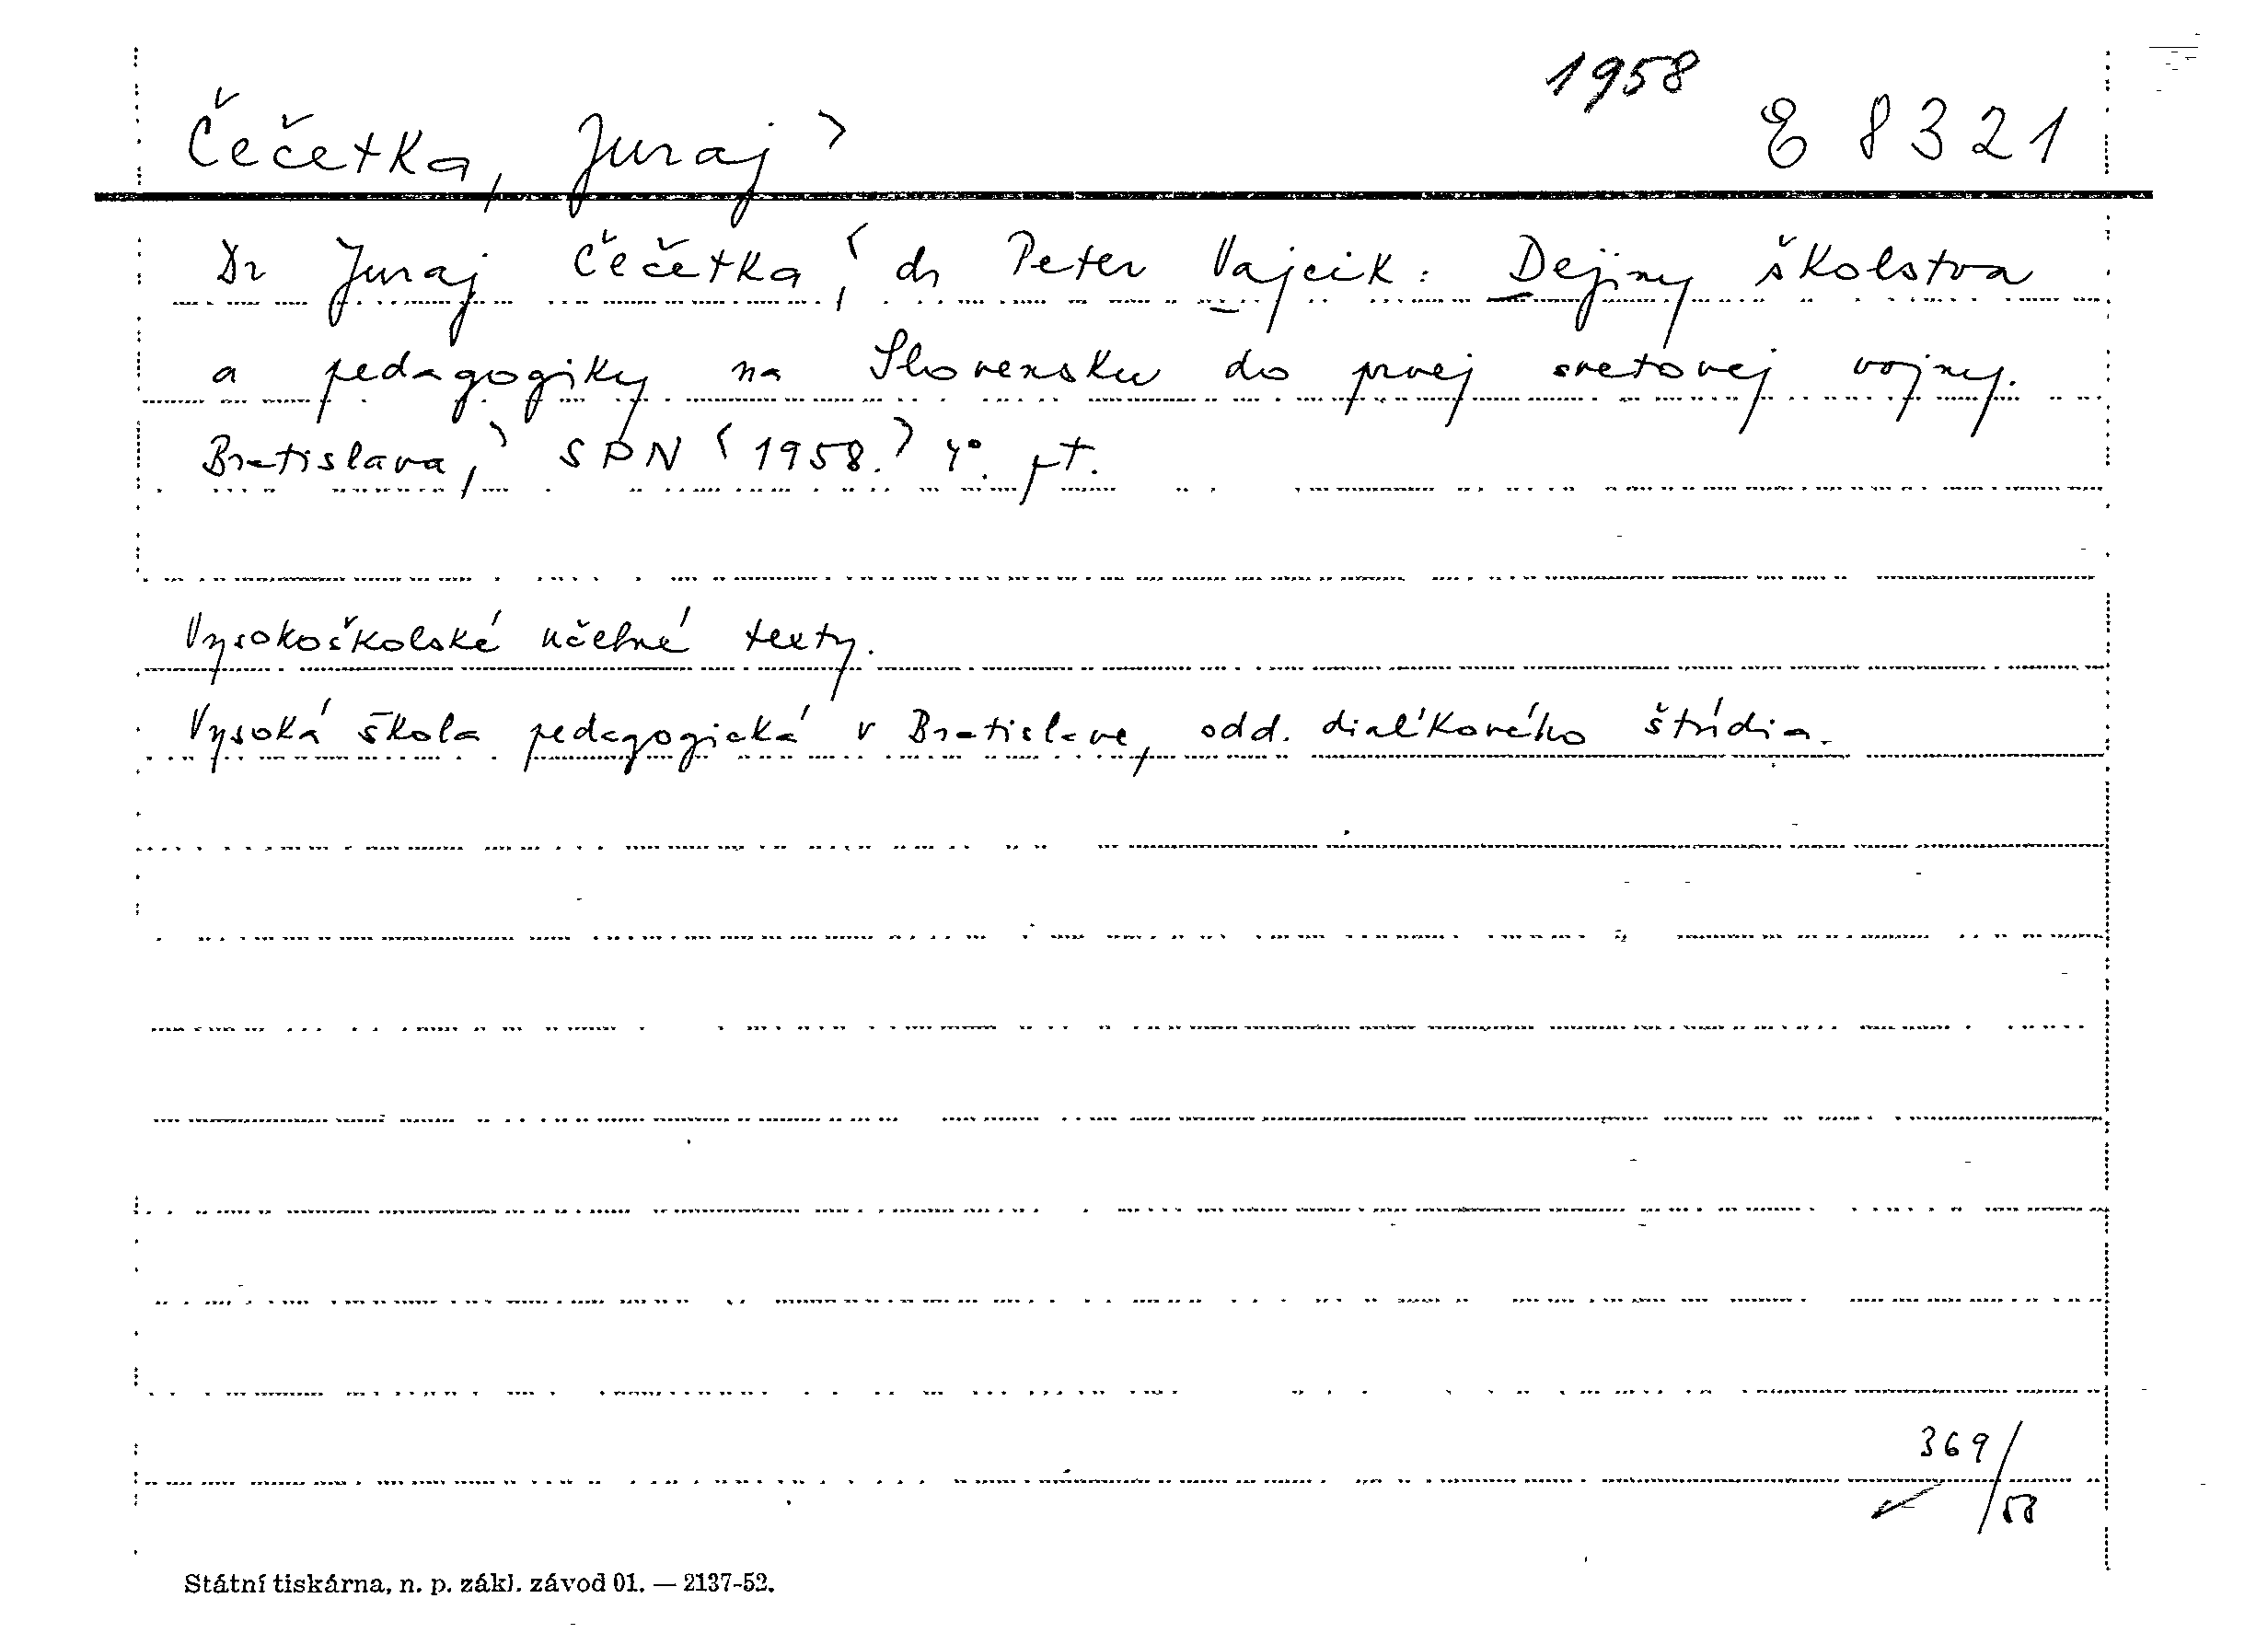 1958
Čečetka, Juraj >
E 8321
Dr Juraj Čečetka, < dr Peter Vajcik: Dejiny školstva
a pedagogiky na Slovensku do prvej svetovej vojny.
Bratislava, > SPN < 1958. > 4°.
Vysokoškolské učebné texty.
Vysoká škola pedagogická v Bratislave, odd. diaľkového štúdia.
369/58
Státní tiskárna, n. p. zákl. závod 01. — 2137-52.